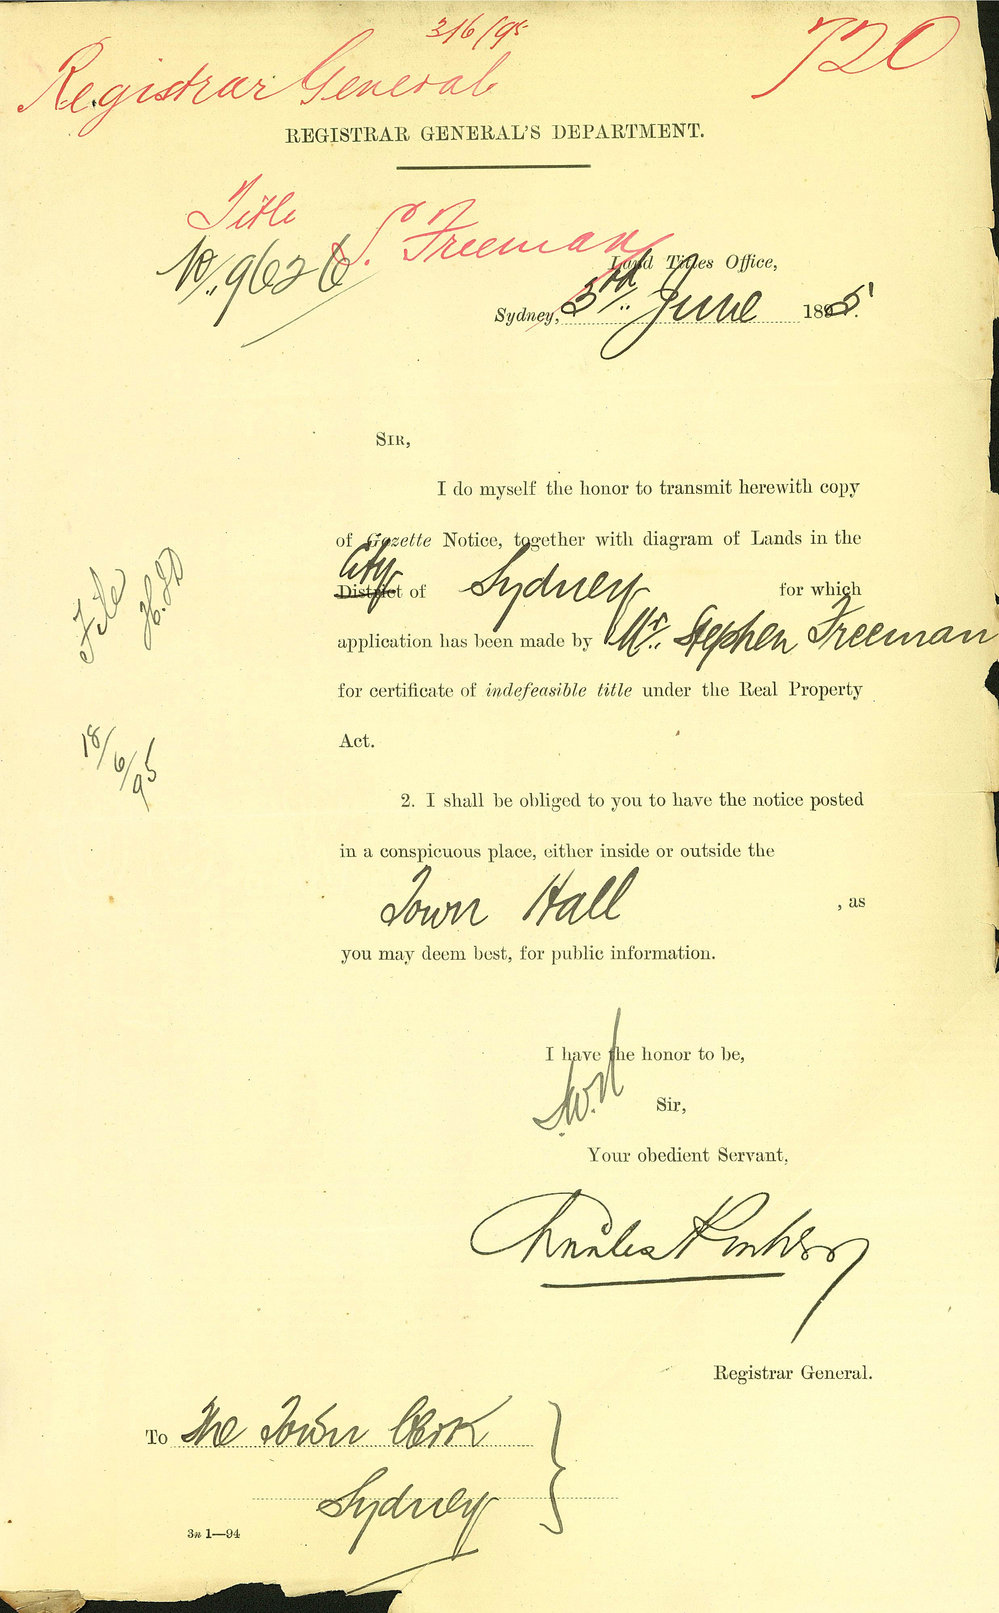 3/6/95
720
Registrar General
REGISTRAR GENERAL'S DEPARTMENT.
Title
S. Freeman
No. 9626
Land Titles Office,
Sydney, 3rd June 1895.
SIR,
I do myself the honor to transmit herewith copy
of Gazette Notice, together with diagram of Lands in the
City
District of Sydney for which
application has been made by Mr. Stephen Freeman
for certificate of indefeasible title under the Real Property
Act.
File
18/6/95
2. I shall be obliged to you to have the notice posted
in a conspicuous place, either inside or outside the
Town Hall , as
you may deem best, for public information.
I have the honor to be,
Sir,
Your obedient Servant,
Charles
Registrar General.
To The Town Clerk
Sydney
3n 1—94